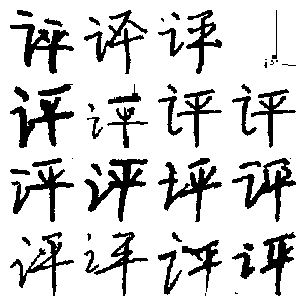 评评评
评评评评
评评坪评
评评评评